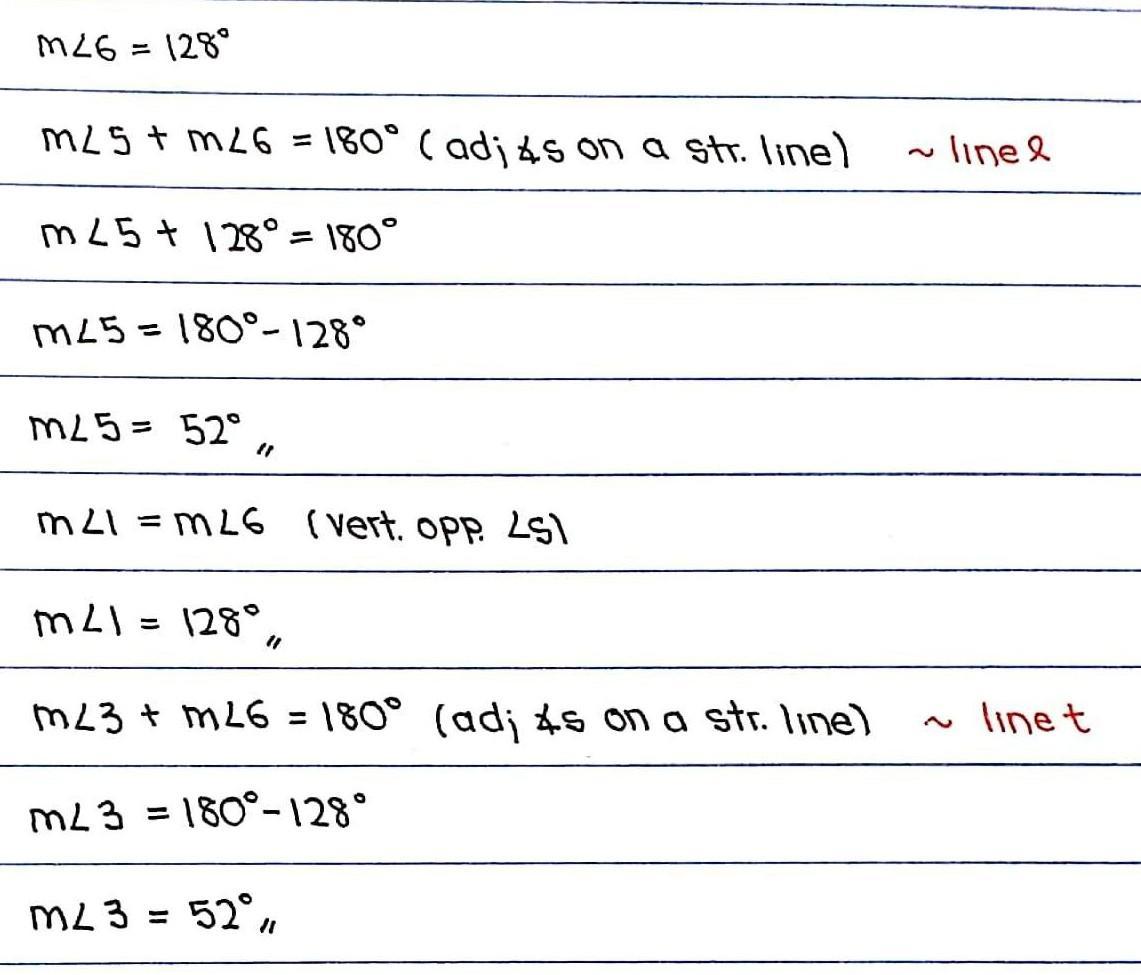 m∠6 = 128°
m∠5 + m∠6 = 180° (adj ∡s on a str. line) ~ line l
m∠5 + 128° = 180°
m∠5 = 180° - 128°
m∠5 = 52°〃
m∠1 = m∠6 (vert. opp. ∠s)
m∠1 = 128°〃
m∠3 + m∠6 = 180° (adj ∡s on a str. line) ~ line t
m∠3 = 180° - 128°
m∠3 = 52°〃